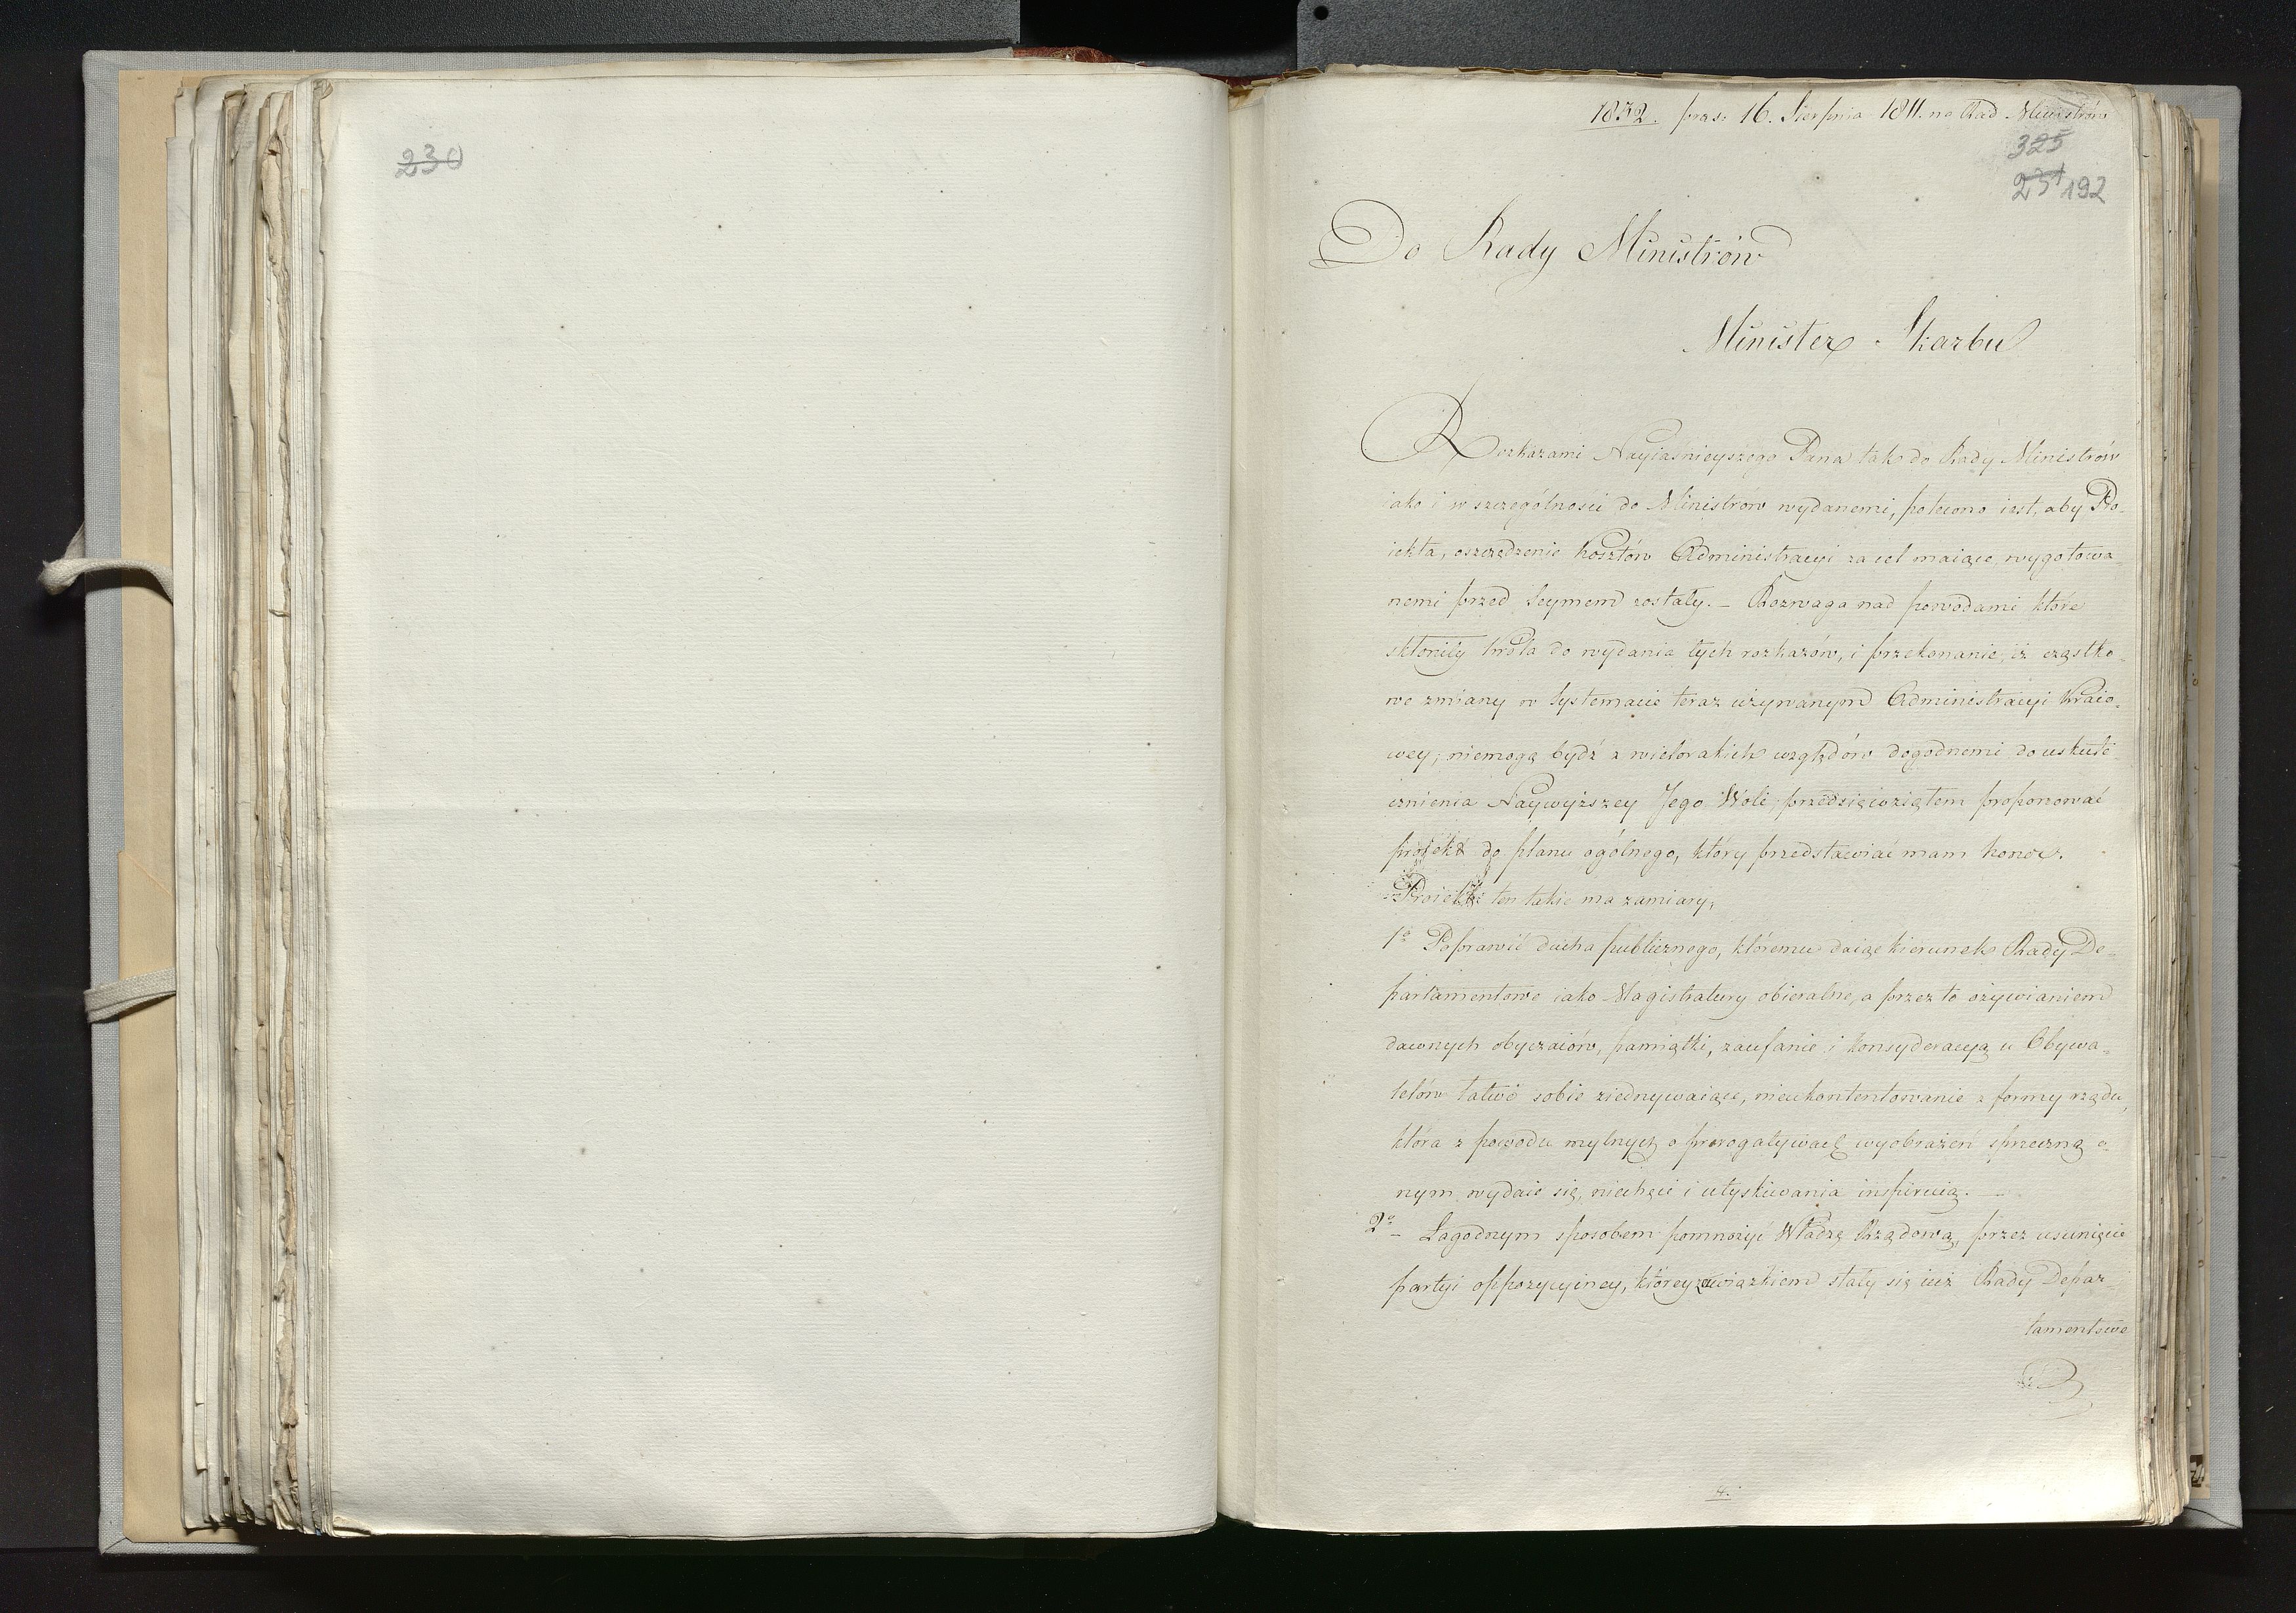 230
1832. præs: 16. Sierpnia 1811. na Rad. Ministrów
325
231 192
Do Rady Ministrów
Minister Skarbu
Rozkazami Nayiaśnieyszego Pana tak do Rady Ministrów
iako i w szczególności do Ministrów wydanemi, polecono iest, aby Pro-
iekta, oszczędzenie kosztów Administracyi za cel maiące, wygotowa-
nemi przed Seymem zostały. – Rozwaga nad powodami które
skłoniły Króla do wydania tych rozkazów, i przekonanie, iż cząstko-
we zmiany w Systemacie teraz używanym Administracyi Kraio-
wey, niemogą bydź z wielorakich względów dogodnemi do uskute-
cznienia Naywyższey Jego Woli, przedsięwziąłem proponować
projekt do planu ogólnego, który przedstawiać mam honor.
Proiekt ten takie ma zamiary,
1o Poprawić ducha publicznego, któremu daiąc kierunek Rady De-
partamentowe iako Magistratury obieralne, a przez to ożywianiem
dawnych obyczaiów, pamiątki, zaufanie i konsyderacyą u Obywa-
telów łatwo sobie ziednywaiące, nieukontentowanie z formy rządu,
która z powodu mylnych o prerogatywach wyobrażeń sprzeczną o-
nym wydaie się, niechęci i utyskiwania inspiruią. –
2o – Łagodnym sposobem pomnożyć Władzę Rządową, przez usunięcie
partyi oppozycyiney, którey zawiązkiem stały się iuż Rady Depar-
tamentowe
4.